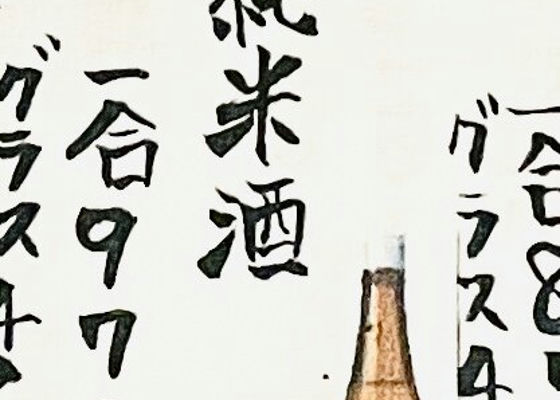 一合8
グラス4
純米酒
一合97
グラス4